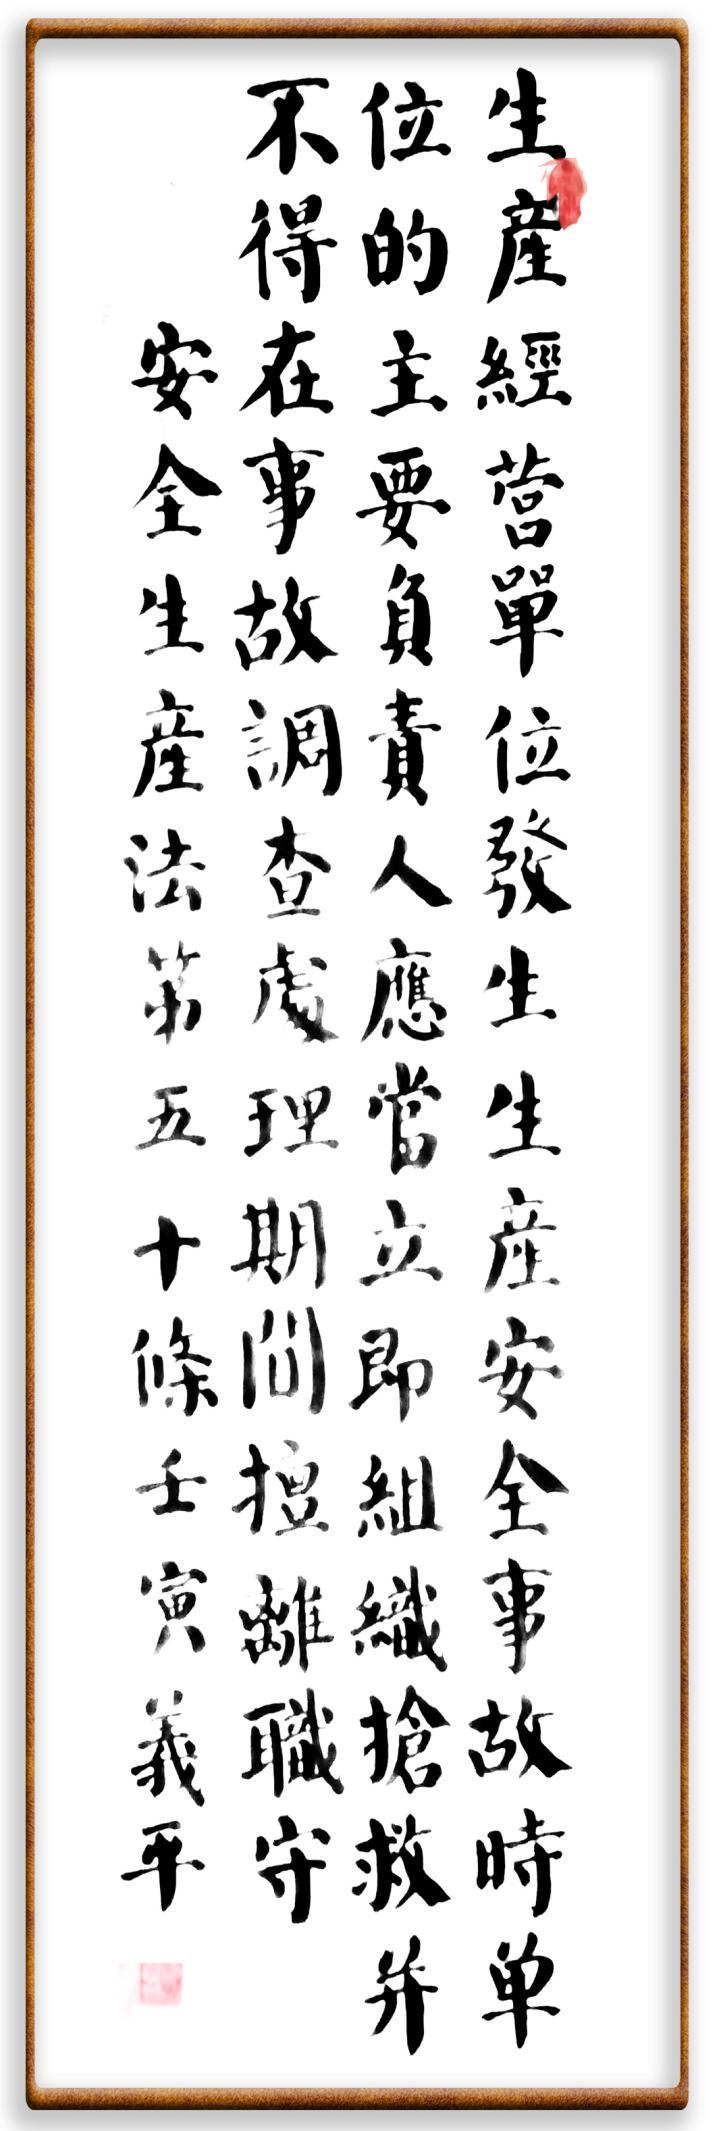 生産經营單位發生生産安全事故時单
位的主要負責人應當立即組織搶救并
不得在事故調查處理期間擅離職守
安全生産法第五十條壬寅義平